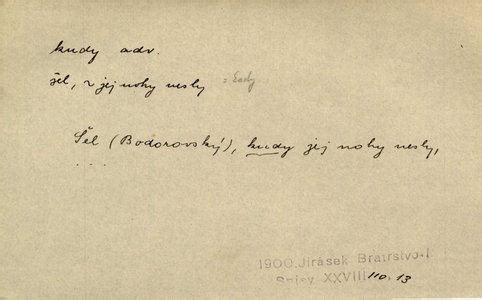 kudy adv.
šel, ~ jej nohy nesly
Šel (Bodorovský), kudy jej nohy nesly,
. . . .
1900. Jirásek Bratrstvo-I
Spisy XXVIII 110.13